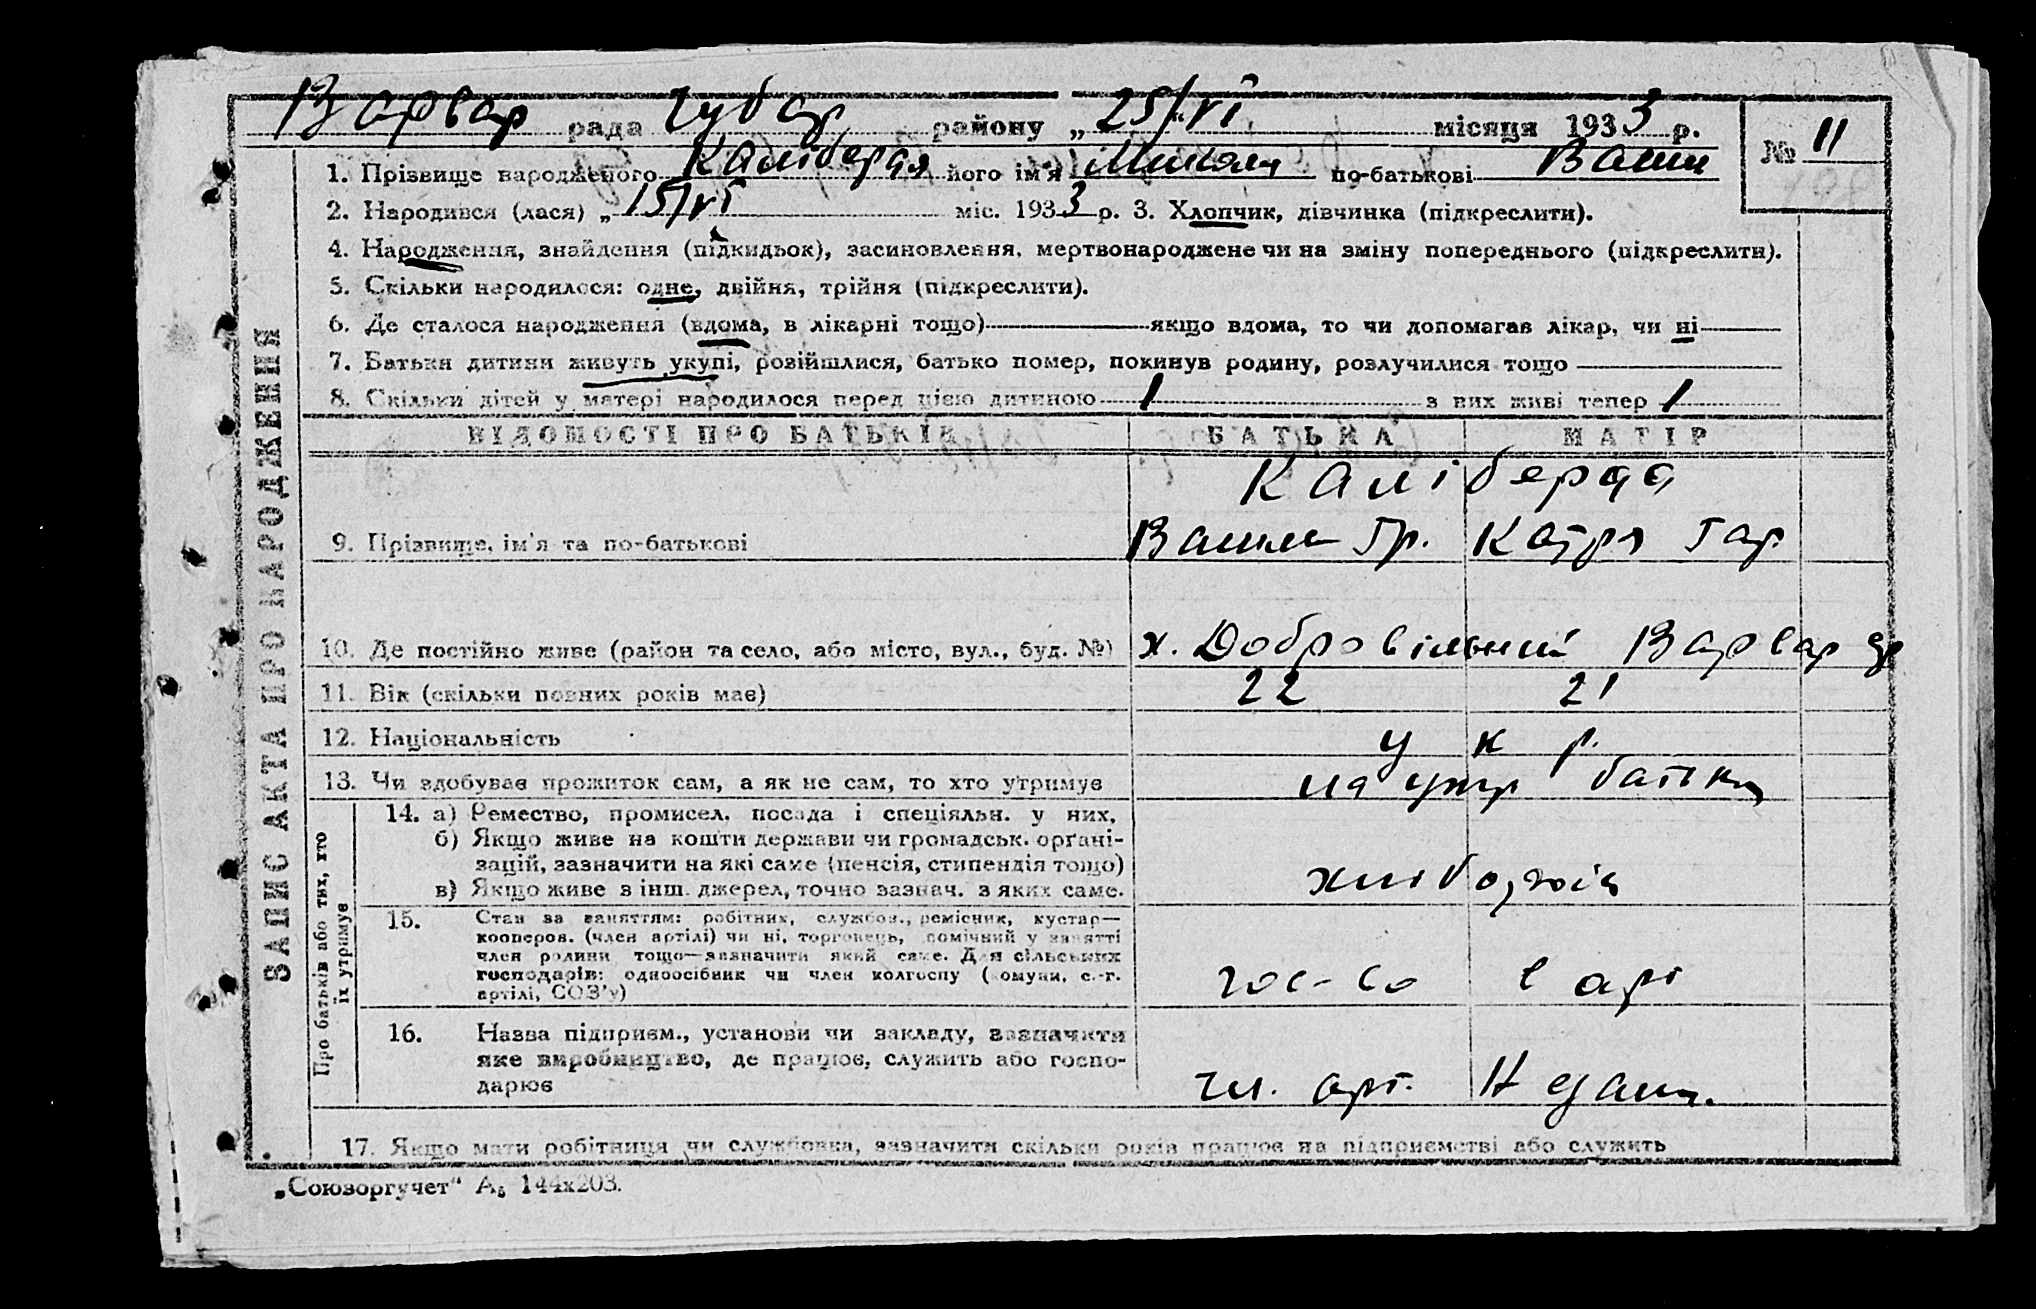 Варвар рада Чубар району „25/VI місяця 1933 р.
№ 11
1. Прізвище народженого Каліберда його ім'я Микола по-батькові Васил
2. Народився (лася) „15/VI міс. 1933 р. 3. Хлопчик, дівчинка (підкреслити).
4. Народження, знайдення (підкидьок), засиновлення, мертвонароджене чи на зміну попереднього (підкреслити).
5. Скільки народилося: одне, двійня, трійня (підкреслити).
6. Де сталося народження (вдома, в лікарні тощо) якщо вдома, то чи допомагав лікар, чи ні
7. Батьки дитини живуть укупі, розійшлися, батько помер, покинув родину, розлучилися тощо
8. Скільки дітей у матері народилося перед цією дитиною 1 з них живі тепер 1
ЗАПИС АКТА ПРО НАРОДЖЕННЯ
ВІДОМОСТІ ПРО БАТЬКІВ БАТЬКА МАТІР
Каліберда
9. Прізвище, ім'я та по-батькові Васил Гр. Катря Гар
10. Де постійно живе (район та село, або місто, вул., буд. №) х. Добровільний Варвар
11. Вік (скільки повних років має) 22 21
12. Національність укр.
13. Чи здобуває прожиток сам, а як не сам, то хто утримує на утр батька
Про батьків або тих, хто їх утримує
14. а) Ремество, промисел, посада і спеціяльн. у них,
б) Якщо живе на кошти держави чи громадськ. орґані-
зацій, зазначити на які саме (пенсія, стипендія тощо)
в) Якщо живе з інш. джерел, точно зазнач. з яких саме.
хлібороб
15. Стан за заняттям: робітник, службов., ремісник, кустар—
кооперов. (член артілі) чи ні, торговець, помічний у занятті
член родини тощо—зазначити який саме. Для сільських
господарів: одноосібник чи член колгоспу (комуни, с.-г.
артілі, СОЗ'у)
гос-во в арт
16. Назва підприєм., установи чи закладу, зазначити
яке виробництво, де працює, служить або госпо-
дарює
чл. арт.
17. Якщо мати робітниця чи службовка, зазначити скільки років працює на підприємстві або служить
„Союзоргучет" А₅ 144х203.